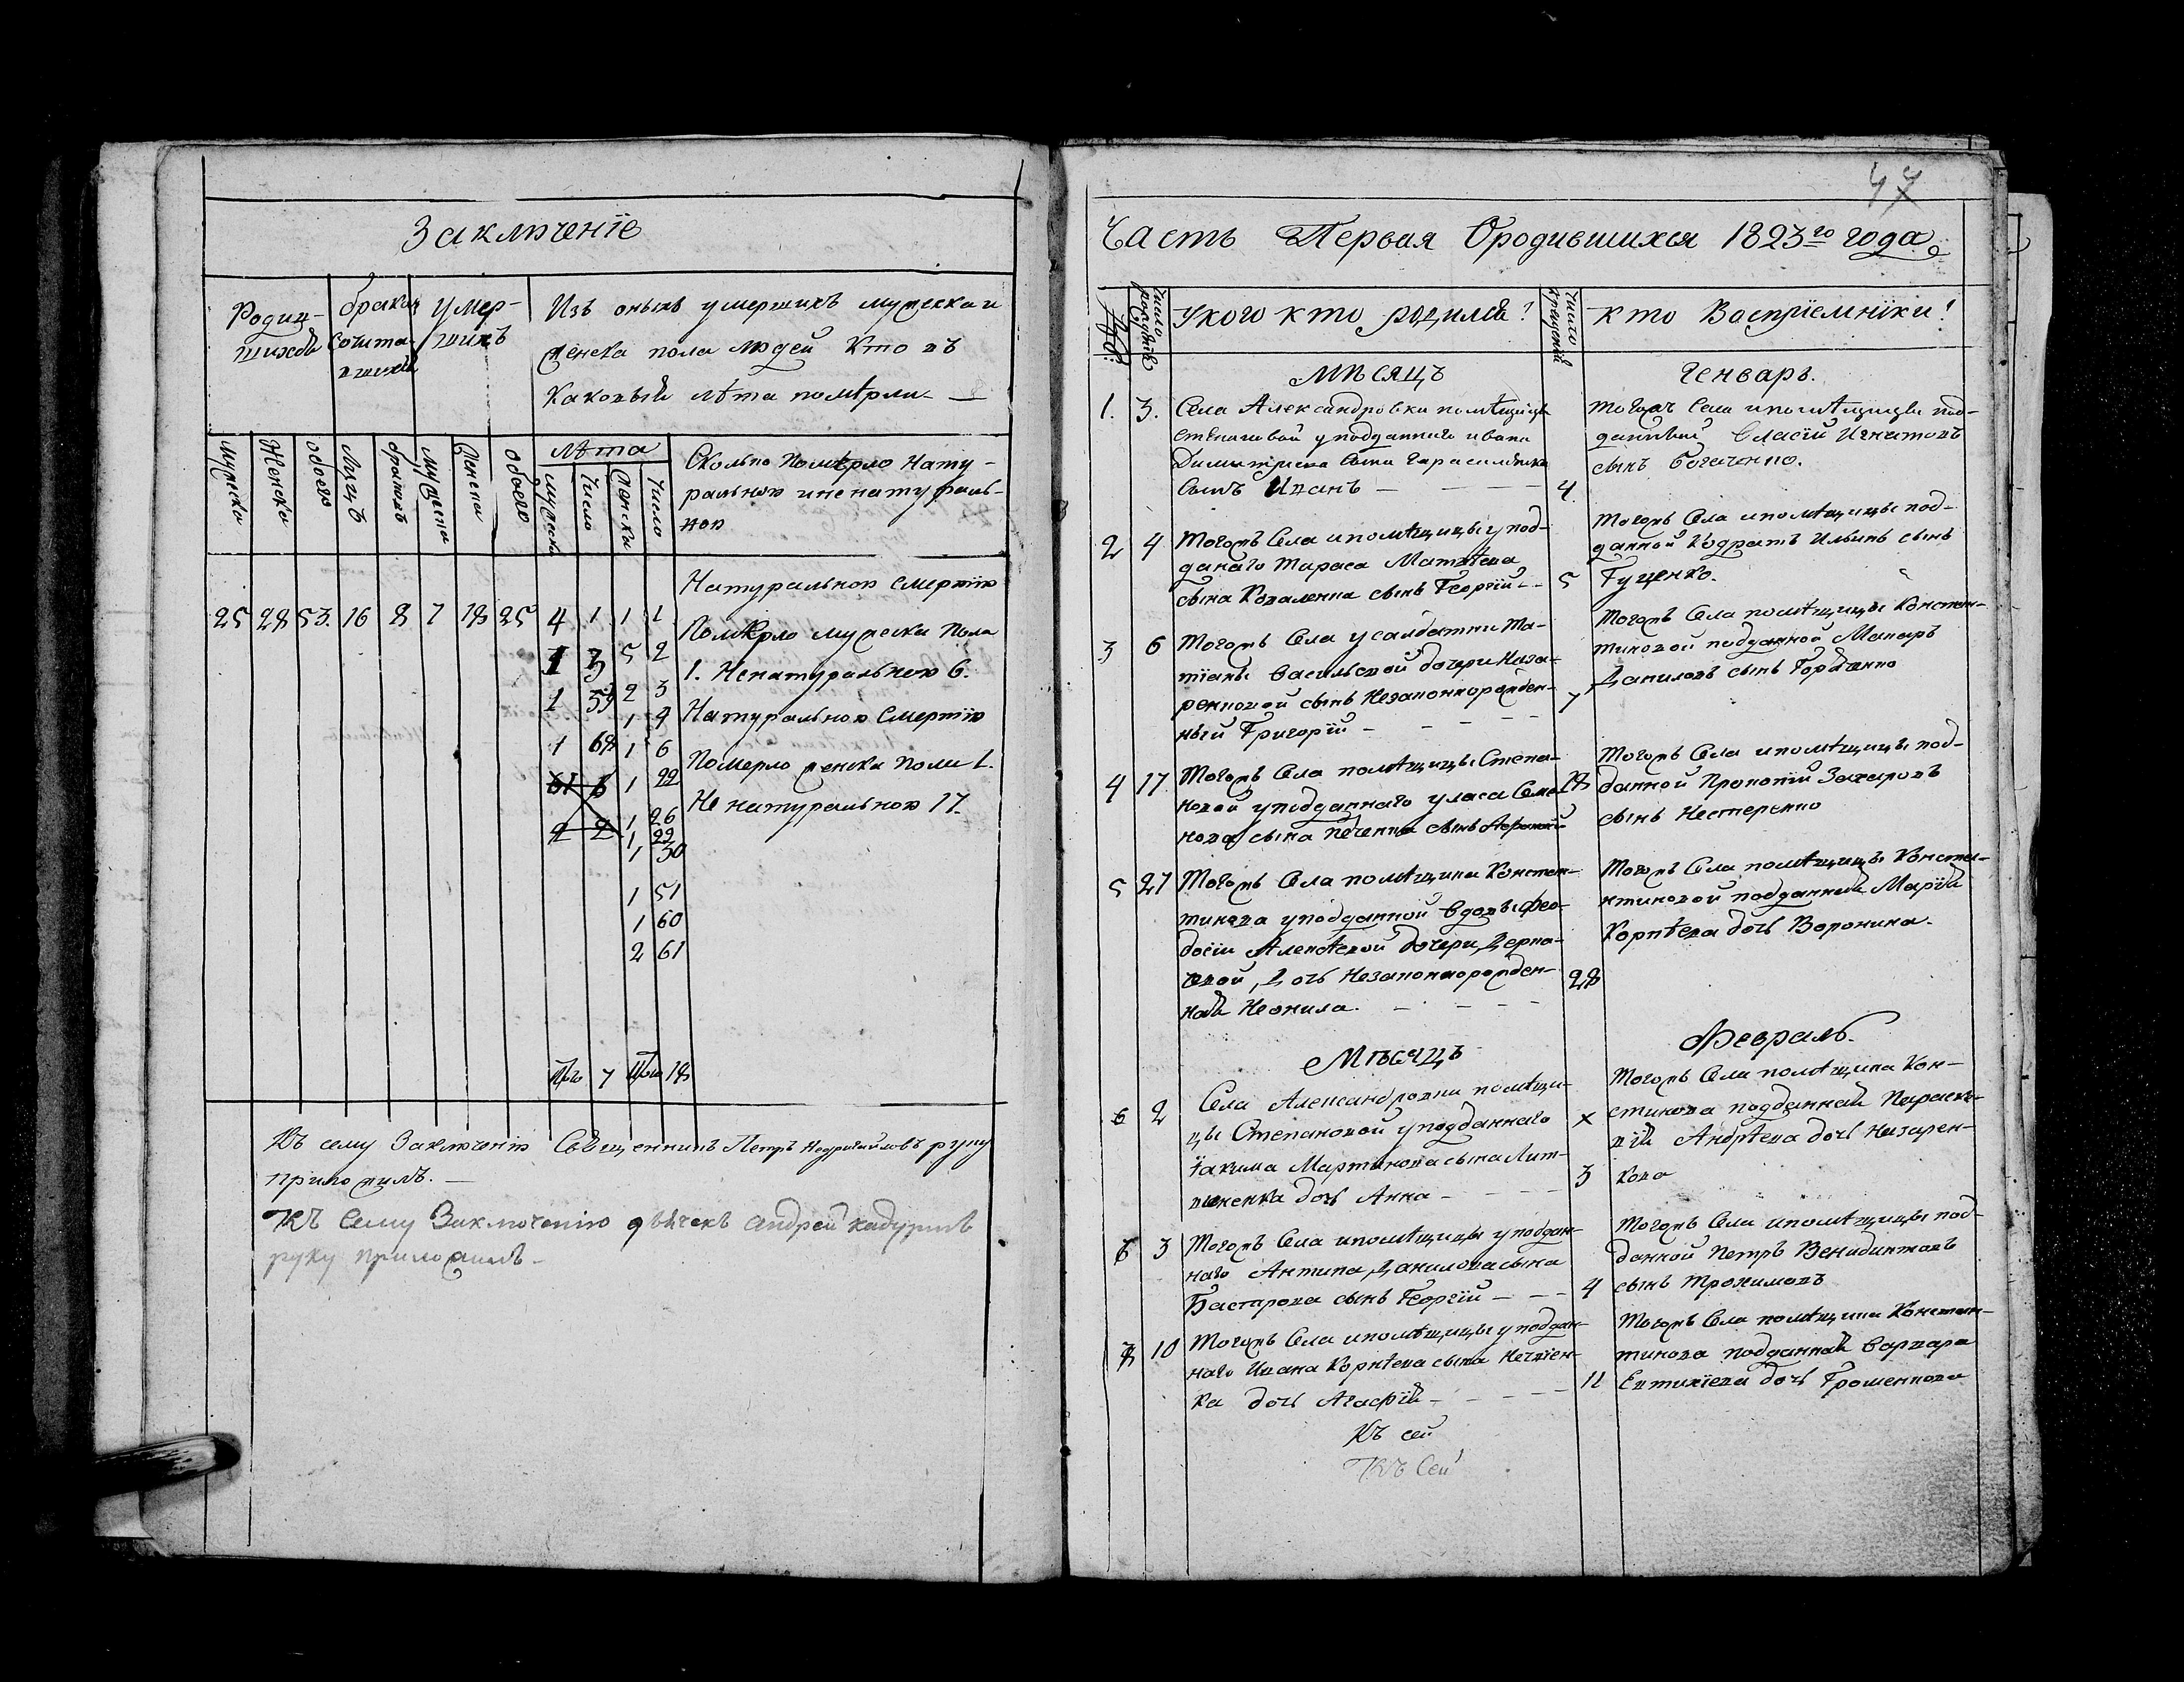 Заключенїе
Родив-
шихся
бракол
Сочета-
вшихся
умер-
шихъ
Изъ оныхъ умершихъ мужеска и
женска пола людей Кто въ
каковыя лѣта помѣрли —
мужеска
Женска
обоего
Лицъ
браковъ
Мужеска
Женска
обоего
лѣта
мужеска
Число
Женска
Число
Сколько Помѣрло Нату-
ральною и ненатураль-
ною
25 28 53. 16 8 7 18 25 4 1 1 1
1 3 5 2
1 59 2 3
1 4
1 68 1 6
1 22
1 26
1 22
1 30
1 51
1 60
2 61
Итого 7 Итого 18
Натуральною смертїю
Помѣрло мужеска Пола
1. Ненатуральною 6.
Натуральною Смертїю
Померло женска Пола 1.
Не натуральною 17.
Къ сему Заключенїю Священникъ Петръ руку
приложилъ. —
Къ Сему Заключенію дьячекъ Андрей
руку приложилъ —
47
Часть Первая О родившихся 1823го года
№
Число рожденїя
У кого кто родился?
Число крещенїя
Кто Воспрїемники!
МѢСЯЦЪ
Генварь.
1. 3. Села Александровки помѣщицы
Степановой у подданнаго Ивана
Димитриева сына Гарасименка
сынъ Иванъ —
4
Тогожъ Села и помѣщицы под-
данный Власїй Игнатовъ
сынъ Богаченко.
2 4 Тогожъ Села и помѣщицы у под-
данаго Тараса Матвѣева
сына Коваленка сынъ Георгїй —
5
Тогожъ Села и помѣщицы под-
данной Кодратъ Ильинъ сынъ
Гуценко.
3 6 Тогожъ Села у салдатки Та-
тїаны Васильевой дочери Наза-
ренковой сынъ Незаконнорожден-
ный Григорїй —
7
Тогожъ Села помѣщицы Констан-
тиновой подданной Макаръ
Даниловъ сынъ Гордїенко
4 17 Тогожъ Села помѣщицы Степа-
новой у подданнаго Уласа Семе-
нова сына Печенка сынъ
18
Тогожъ Села и помѣщицы под-
данной Прокопїй Захаровъ
сынъ Нестеренко
5 27 Тогожъ Села помѣщика Констан-
тинова у подданной вдовы Фео-
досїи Алексѣевой дочери Дерка-
чевой, Дочь Незаконнорожден-
ная Неонила. —
28
Тогожъ Села помѣщицы Конста-
нтиновой подданная Марїя
Корнѣева дочь Воронина.
МѢСЯЦЪ
Февраль.
6 2 Села Александровки помѣщи-
цы Степановой у подданнаго
Їакима Мартинова сына Лит-
виненка дочь Анна —
3
Тогожъ Села помѣщика Кон-
стинова подданная Параске-
вїя Андрѣева дочь Назарен-
кова
6 3 Тогожъ Села и помѣщицы у поддан-
наго Антипа Данилова сына
Бастрова сынъ Георгїй —
4
Тогожъ Села и помѣщицы под-
данной Петръ Венидиктовъ
сынъ Трохимовъ
7 10 Тогожъ Села и помѣщицы у поддан-
наго Ивана Корнѣева сына
ка дочь Агафїя —
11
Тогожъ Села помѣщика Констан-
тинова подданная Варвара
Евтихїева дочь Грошенкова
Къ сей
Къ Сей